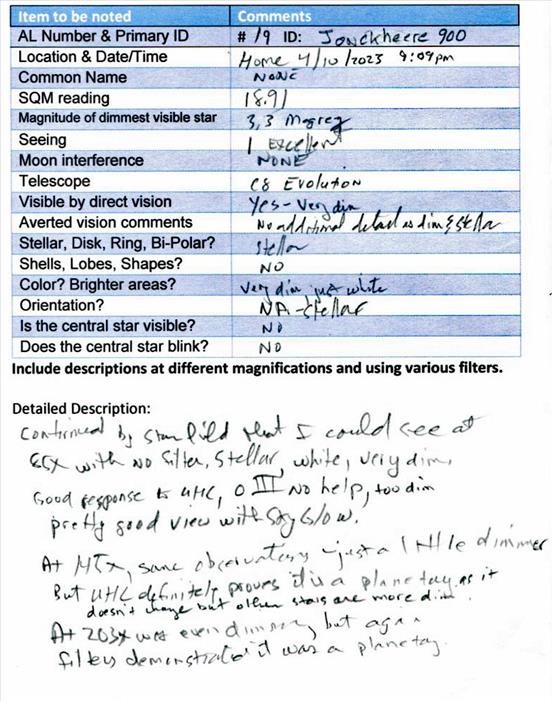 Item to be noted Comments
AL Number & Primary ID # 19 ID: Jonckheere 900
Location & Date/Time Home 4/10/2023 9:09pm
Common Name NONE
SQM reading 18.91
Magnitude of dimmest visible star 3.3 Magreg
Seeing 1 Excellent
Moon interference NONE
Telescope C8 Evolution
Visible by direct vision Yes - Very dim
Averted vision comments No additional detail as dim & stellar
Stellar, Disk, Ring, Bi-Polar? Stellar
Shells, Lobes, Shapes? NO
Color? Brighter areas? Very dim just white
Orientation? NA - Stellar
Is the central star visible? NO
Does the central star blink? NO
Include descriptions at different magnifications and using various filters.
Detailed Description:
Confirmed by star field that I could see at
with NO filter, Stellar, white, very dim,
Good response to UHC, O III No help, too dim
pretty good view with Sky Glow.
At same just a little dimmer
But UHC definitely proves it is a planetary as it
doesn't change but other stars are more dim.
At 203x was even dimmer, but again
filters demonstrated it was a planetary.